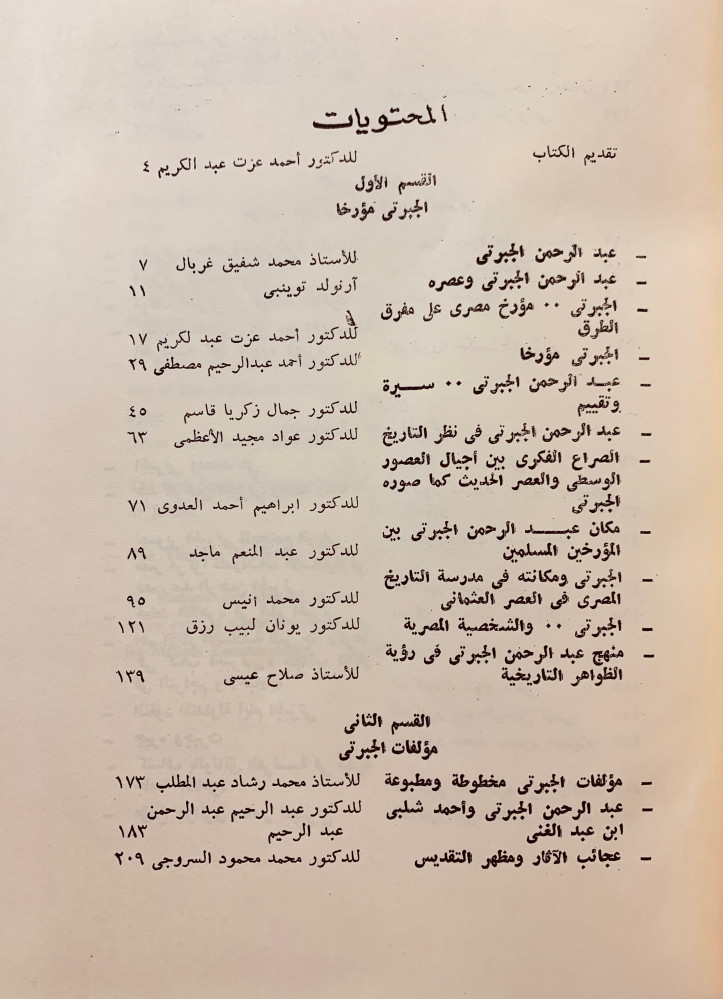 المحتويات
تقديم الكتاب للدكتور أحمد عزت عبد الكريم ٤
القسم الأول
الجبرتى مؤرخا
– عبد الرحمن الجبرتى للأستاذ محمد شفيق غربال ٧
– عبد الرحمن الجبرتى وعصره آرنولد توينبى ١١
– الجبرتى ٠٠ مؤرخ مصرى على مفرق
الطرق للدكتور أحمد عزت عبد لكريم ١٧
– الجبرتى مؤرخا للدكتور أحمد عبدالرحيم مصطفى ٢٩
– عبــد الرحمن الجبرتى ٠٠ ســيرة
وتقييم للدكتور جمال زكريا قاسم ٤٥
– عبد الرحمن الجبرتى فى نظر التاريخ للدكتور عواد مجيد الأعظمى ٦٣
– الصراع الفكرى بين أجيال العصور
الوسطى والعصر الحديث كما صوره
الجبرتى للدكتور ابراهيم أحمد العدوى ٧١
– مكان عبــد الرحمن الجبرتى بين
المؤرخين المسلمين للدكتور عبد المنعم ماجد ٨٩
– الجبرتى ومكانته فى مدرسة التاريخ
المصرى فى العصر العثمانى للدكتور محمد أنيس ٩٥
– الجبرتى ٠٠ والشخصية المصرية للدكتور يونان لبيب رزق ١٢١
– منهج عبد الرحمن الجبرتى فى رؤية
الظواهر التاريخية للأستاذ صلاح عيسى ١٣٩
القسم الثانى
مؤلفات الجبرتى
– مؤلفات الجبرتى مخطوطة ومطبوعة للأستاذ محمد رشاد عبد المطلب ١٧٣
– عبد الرحمن الجبرتى وأحمد شلبى للدكتور عبد الرحيم عبد الرحمن
ابن عبد الغنى عبد الرحيم ١٨٣
– عجائب الآثار ومظهر التقديس للدكتور محمد محمود السروجى ٢٠٩